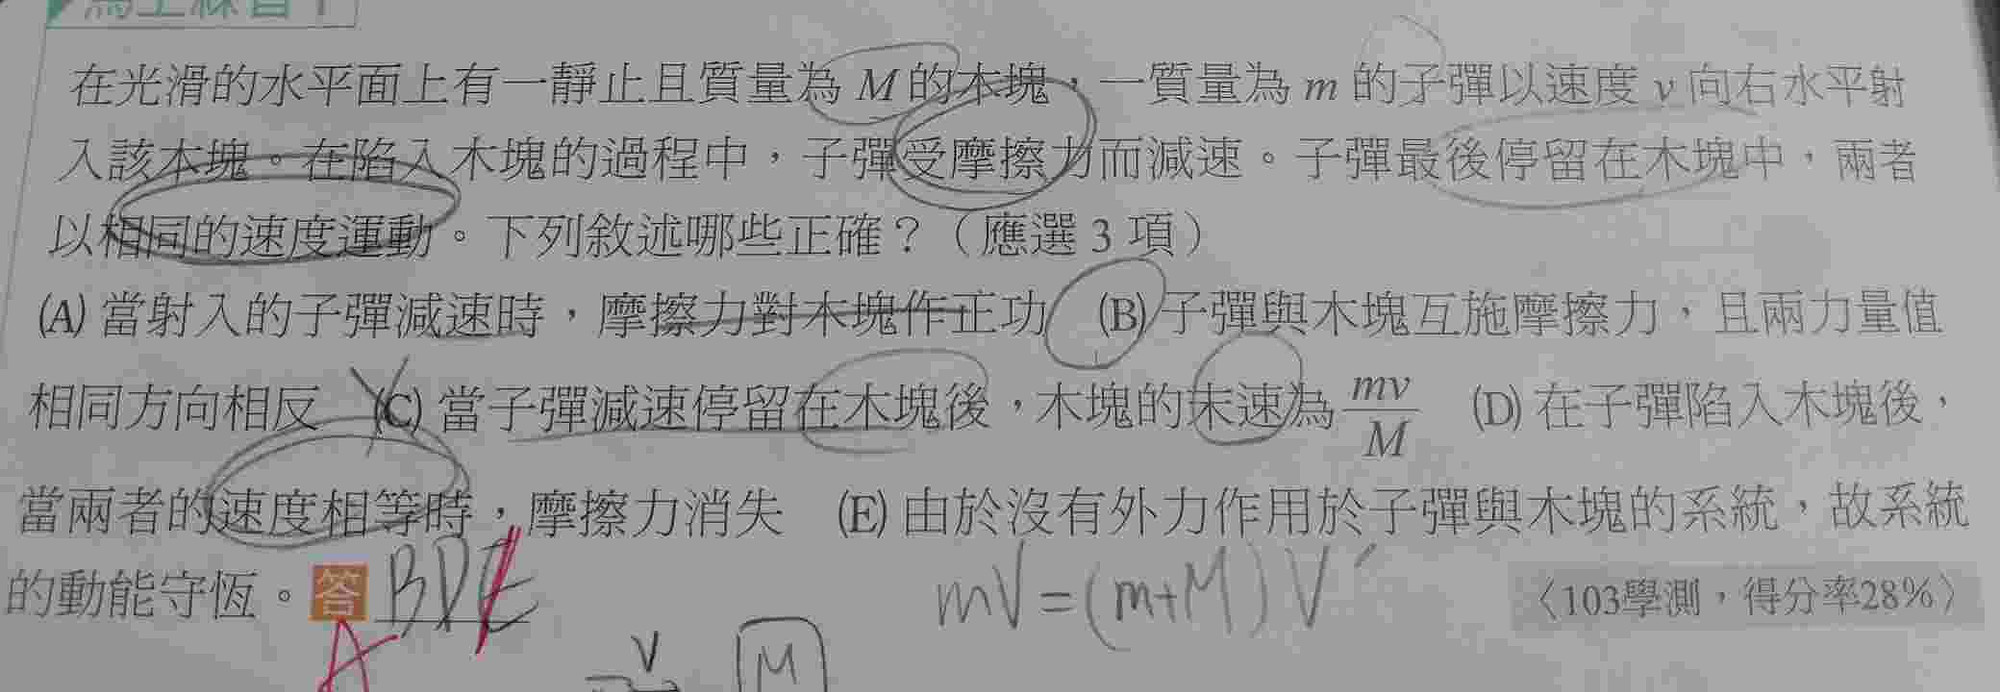 馬上練習1
在光滑的水平面上有一靜止且質量為 M 的木塊，一質量為 m 的子彈以速度 v 向右水平射
入該木塊。在陷入木塊的過程中，子彈受摩擦力而減速。子彈最後停留在木塊中，兩者
以相同的速度運動。下列敘述哪些正確？（應選 3 項）
(A) 當射入的子彈減速時，摩擦力對木塊作正功 (B) 子彈與木塊互施摩擦力，且兩力量值
相同方向相反 (C) 當子彈減速停留在木塊後，木塊的末速為 mv/M (D) 在子彈陷入木塊後，
當兩者的速度相等時，摩擦力消失 (E) 由於沒有外力作用於子彈與木塊的系統，故系統
的動能守恆。答 BDE 〈103學測，得分率28%〉
mV=(m+M)V'
A
V
M